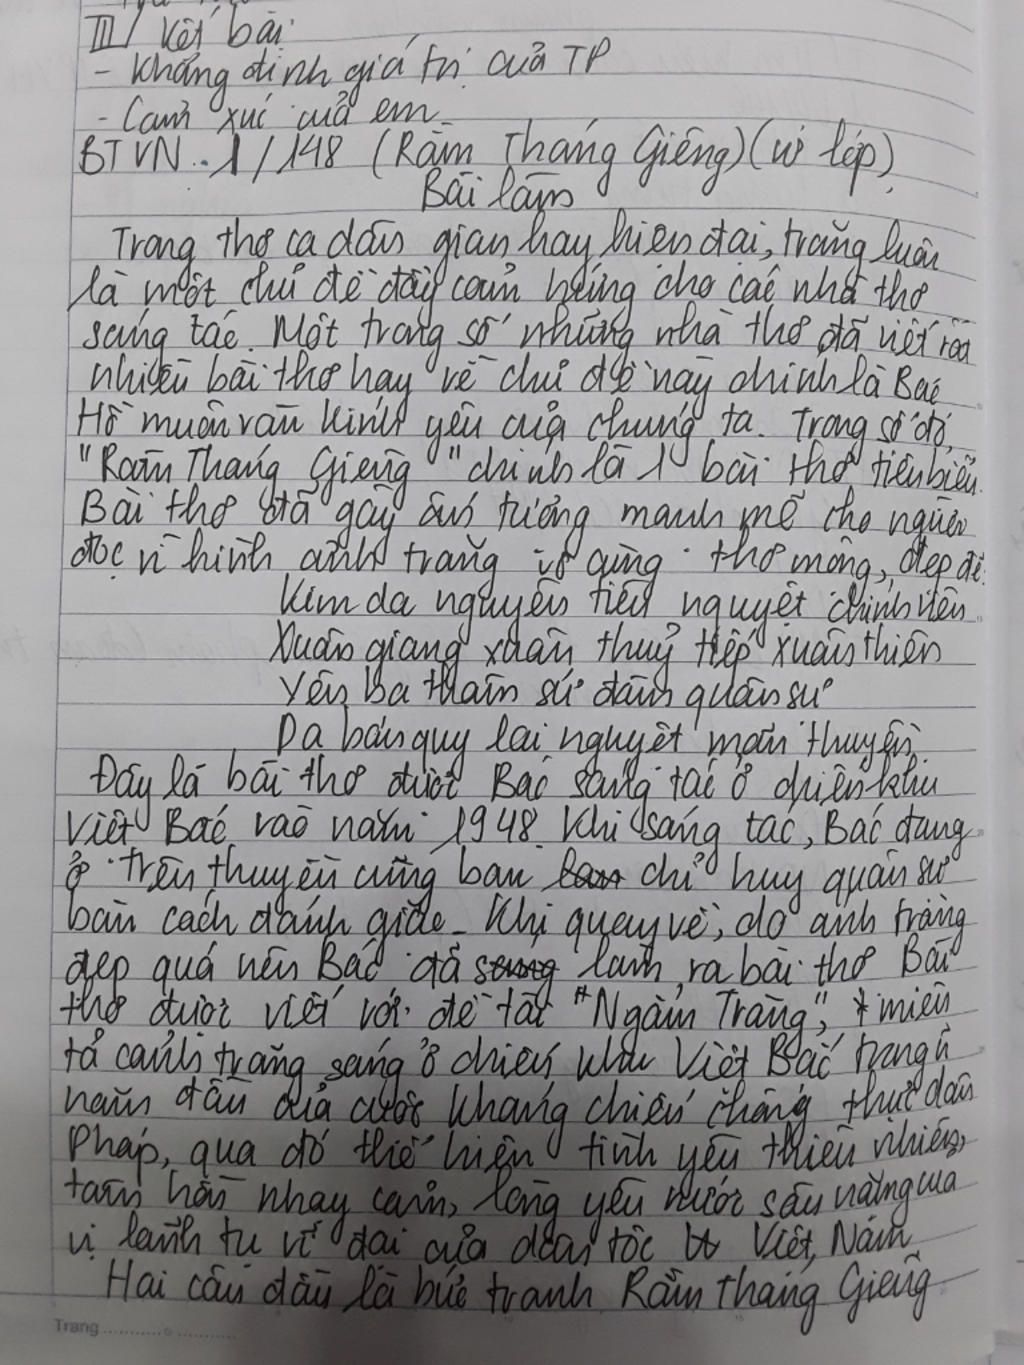 III/ Kết bài
- Khẳng định giá trị của TP
- Cảm xúc của em
BTVN 1/148 (Rằm Tháng Giêng) (vở lớp)
Bài làm
Trong thơ ca dân gian hay hiện đại, trăng luôn
là một chủ đề đầy cảm hứng cho các nhà thơ
sáng tác. Một trong số những nhà thơ đã viết rất
nhiều bài thơ hay về chủ đề này chính là Bác
Hồ muôn vàn kính yêu của chúng ta. Trong số đó,
"Rằm Tháng Giêng" chính là 1 bài thơ tiêu biểu.
Bài thơ đã gây ấn tượng mạnh mẽ cho người
đọc vì hình ảnh trăng vô cùng thơ mộng, đẹp đẽ:
Kim dạ nguyên tiêu nguyệt chính viên
Xuân giang xuân thuỷ tiếp xuân thiên
Yên ba thâm sứ đàm quân sự
Dạ bán quy lai nguyệt mãn thuyền
Đây là bài thơ được Bác sáng tác ở chiến khu
Việt Bắc vào năm 1948. Khi sáng tác, Bác đang
ở trên thuyền cùng ban chỉ huy quân sự
bàn cách đánh giặc. Khi quay về, do ánh trăng
đẹp quá nên Bác đã làm ra bài thơ. Bài
thơ được viết với đề tài "Ngắm Trăng", miêu
tả cảnh trăng sáng ở chiến khu Việt Bắc trong
năm đầu của cuộc kháng chiến chống thực dân
Pháp, qua đó thể hiện tình yêu thiên nhiên,
tâm hồn nhạy cảm, lòng yêu nước sâu nặng của
vị lãnh tụ vĩ đại của dân tộc Việt Nam
Hai câu đầu là bức tranh Rằm tháng Giêng
Trang